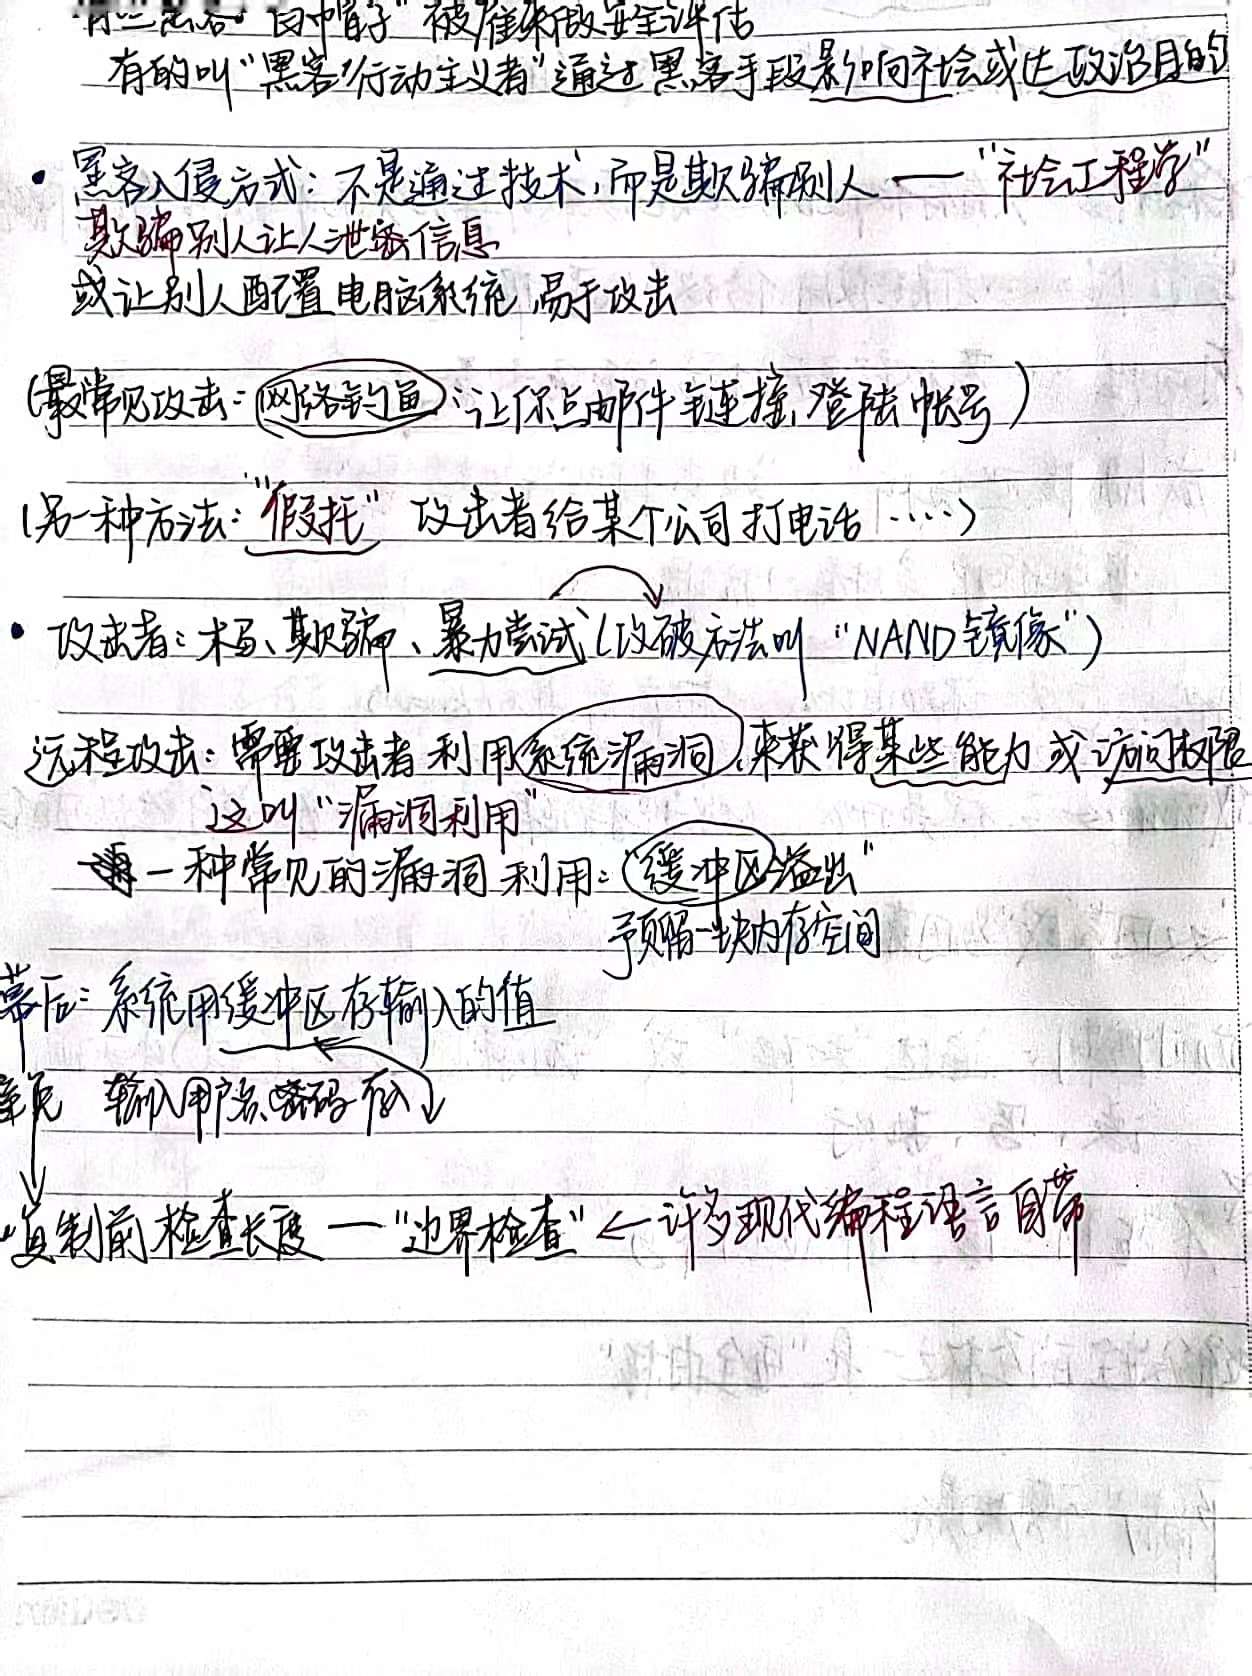 有些黑客"白帽子"被雇来做安全评估
有的叫"黑客行动主义者"通过黑客手段影响社会或达政治目的
• 黑客入侵方式：不是通过技术，而是欺骗别人 —— "社会工程学"
欺骗别人让人泄密信息
或让别人配置电脑系统，易于攻击
(最常见攻击：网络钓鱼：让你点邮件链接，登陆帐号)
(另一种方法："假托" 攻击者给某个公司打电话 ……)
• 攻击者：木马、欺骗、暴力尝试(攻破方法叫 "NAND镜像")
远程攻击：需要攻击者利用系统漏洞，来获得某些能力或访问权限
这叫"漏洞利用"
一种常见的漏洞利用："缓冲区溢出"
预留一块内存空间
幕后：系统用缓冲区存输入的值
输入用户名、密码
复制前检查长度 —— "边界检查" ← 许多现代编程语言自带